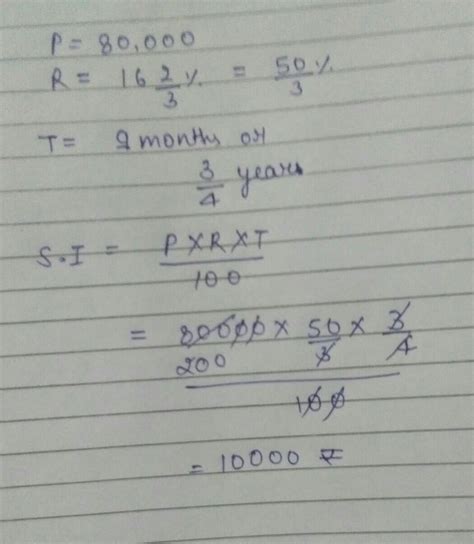 P = 80,000
R = 16 2/3 % = 50/3 %
T = 9 months or
3/4 years
S.I = P X R X T
100
= 80000 x 50/3 x 3/4
200
100
= 10000 ₹